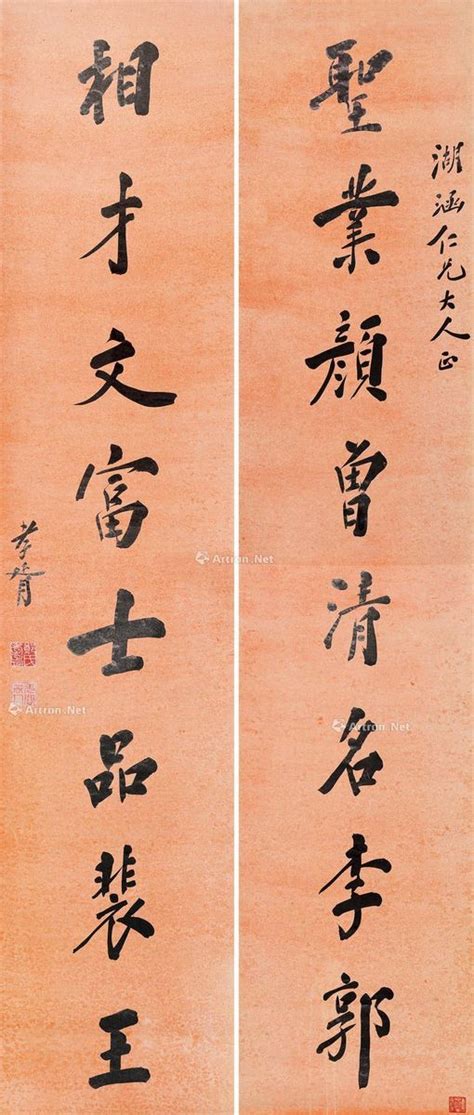 湖涵仁兄大人正
聖業顏曾清名李郭
相才文富士品裴王
孝胥
Artron.Net
Artron.Net
Artron.Net